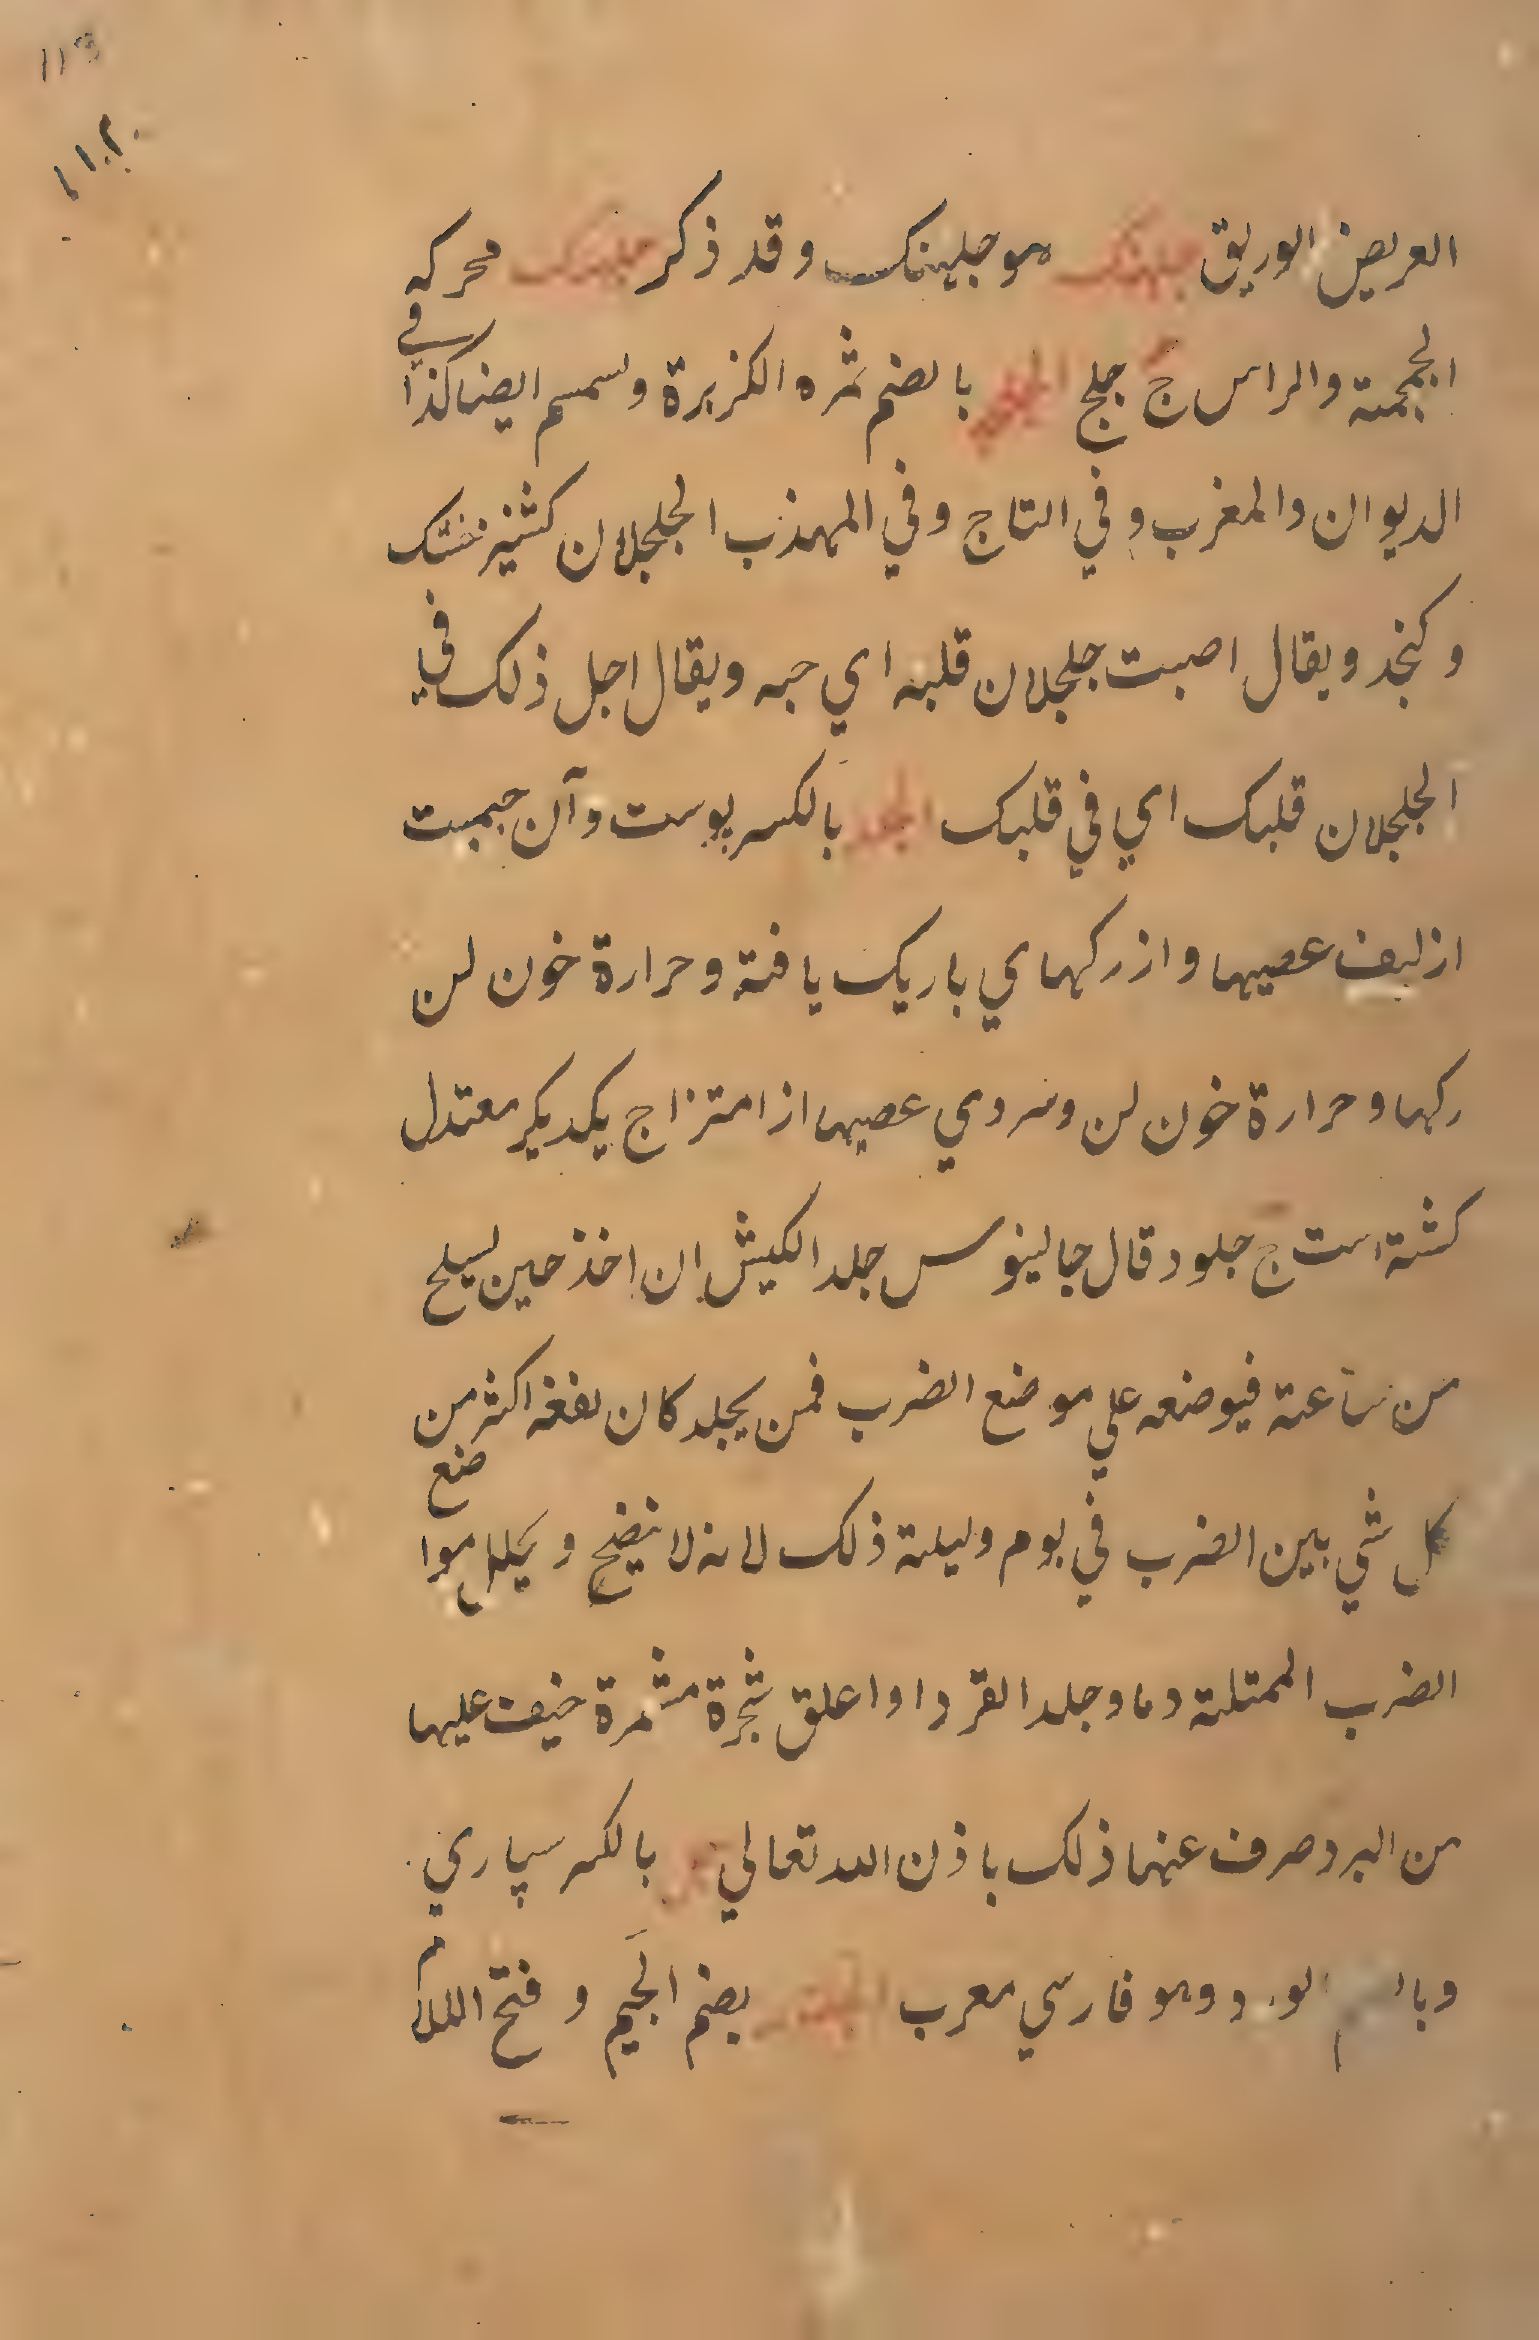 ١١٣
١١٢
العريض الوريق جلبهنك هو جلبهنك وقد ذكر محركه
الجمجمة والراس ج جلج بالضم ثمره الكزبرة وسمسم ايضا كذا في
الديوان والمغرب وفي التاج وفي المهذب الجلجلان كشنيز خشك
وكنجد ويقال اصبت جلجلان قلبه اي حبه ويقال اجل ذلك في
الجلجلان قلبك اي في قلبك الجلد بالكسر پوست وآن جسميست
از ليف عصبها و از ركهاي باريك يافته و حرارة خون لن
ركها و حرارة خون لن وسردي عصبها از امتزاج يكديكر معتدل
كشته است ج جلود قال جالينوس جلد الكبش ان اخذ حين يسلخ
من ساعته فيوضعه علي موضع الضرب فمن يجلد كان نفعه اكثر من
كل شي بين الضرب في يوم وليلة ذلك لانه لا ينضج ويحلل مواضع
الضرب الممتلية دما وجلد القرد اذا اعلق شجرة مثمرة خيف عليها
من البرد صرف عنها ذلك باذن الله تعالي بالكسر سپاري
وبالضم الورد وهو فارسي معرب بضم الجيم و فتح اللام